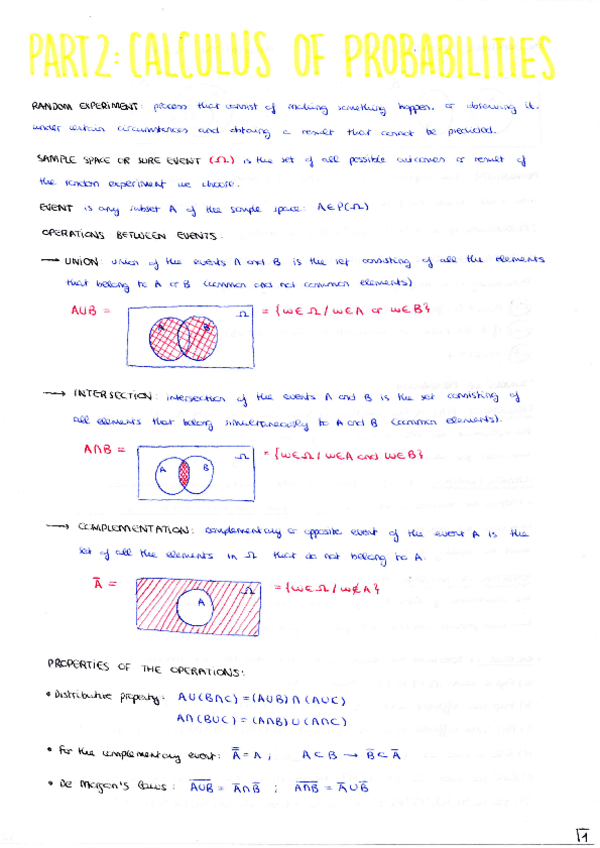 PART 2: CALCULUS OF PROBABILITIES
RANDOM EXPERIMENT: process that consist of making something happen, or observing it,
under certain circumstances and obtaing a result that cannot be predicted.
SAMPLE SPACE OR SURE EVENT (Ω) is the set of all possible outcomes or result of
the random experiment we choose.
EVENT is any subset A of the sample space: A∈P(Ω)
OPERATIONS BETWEEN EVENTS:
→ UNION: union of the events A and B is the set consisting of all the elements
that belong to A or B (common and not common elements)
A∪B = A B Ω = {ω∈Ω / ω∈A or ω∈B}
→ INTERSECTION: intersection of the events A and B is the set consisting of
all elements that belong simultaneously to A and B (common elements).
A∩B = A B Ω = {ω∈Ω / ω∈A and ω∈B}
→ COMPLEMENTATION: complementary or opposite event of the event A is the
set of all the elements in Ω that do not belong to A.
A̅ = A Ω = {ω∈Ω / ω∉A}
PROPERTIES OF THE OPERATIONS:
• Distributive property: A∪(B∩C) = (A∪B)∩(A∪C)
A∩(B∪C) = (A∩B)∪(A∩C)
• For the complementary event: A̿ = A ; A⊂B → B̅⊂A̅
• De Morgan's laws: A̅∪̅B̅ = A̅∩B̅ ; A̅∩̅B̅ = A̅∪B̅
1